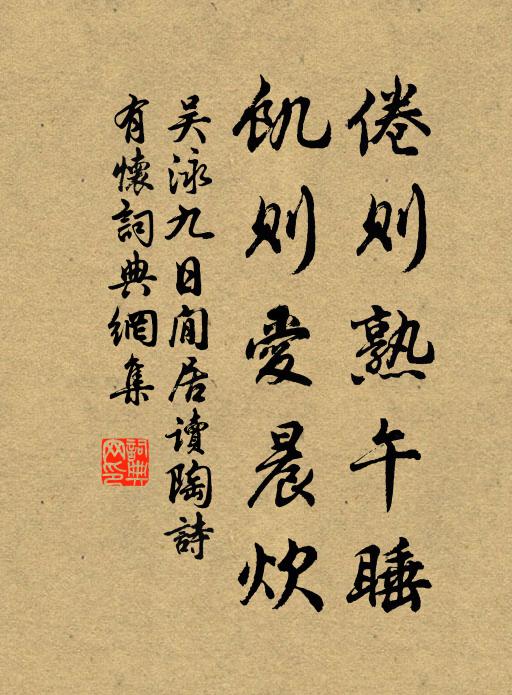 倦則熟午睡
飢則愛晨炊
吴泳九日闲居讀陶詩
有懷詞典網集
詞典
网印